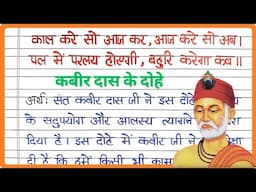 काल करे सो आज कर, आज करे सो अब।
पल में परलय होएगी, बहुरि करेगा कब॥
कबीर दास के दोहे
अर्थ: संत कबीर दास जी ने इस दोहे
के सदुपयोग और आलस्य त्यागने
दिया है। इस दोहे में कबीर जी ने
दी है कि हमें किसी भी काम